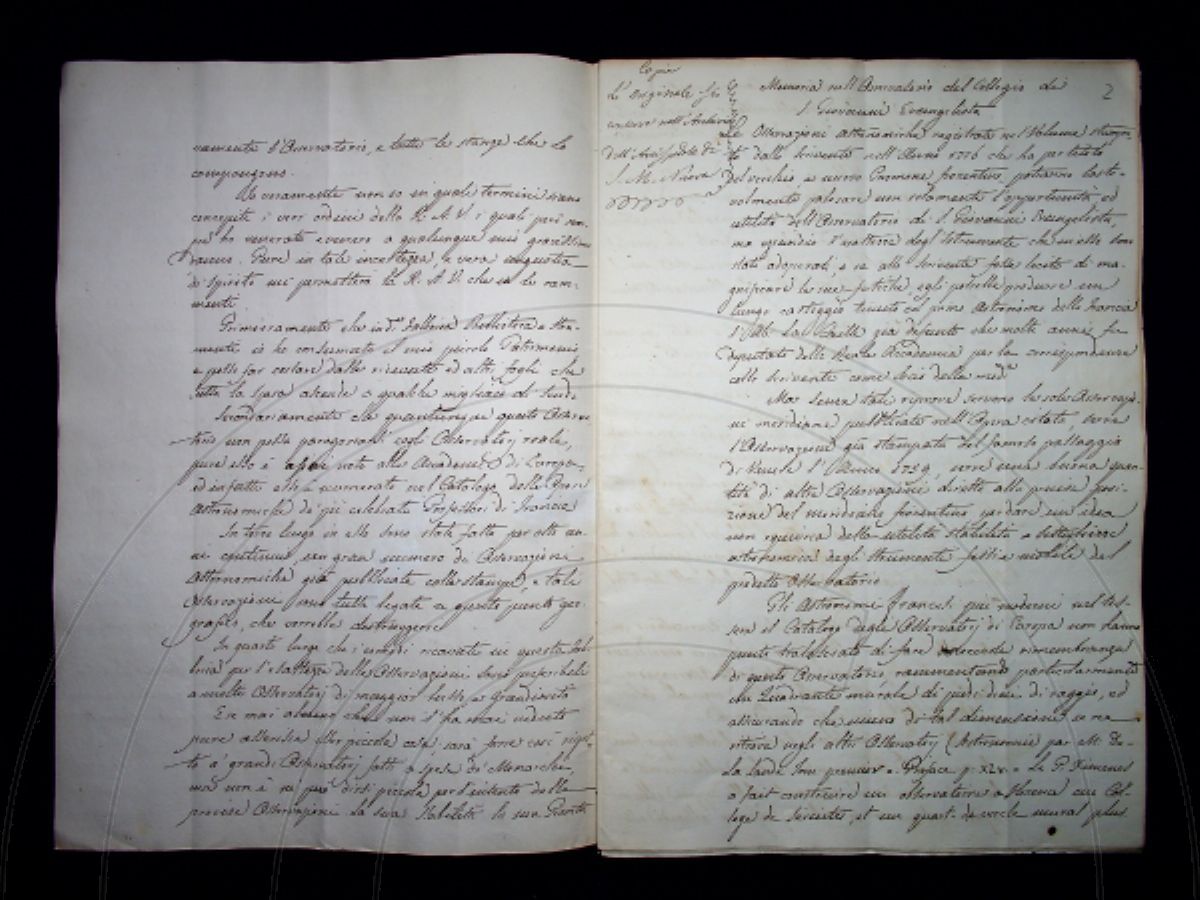 namente l'Osservatorio, e tutte le stanze che lo
compongono.
Io veramente non so in quali termini siano
concepiti i veri ordini della R. A. V. i quali però sem-
pre ho venerato e venero a qualunque mio gravissimo
danno. Pure in tale incertezza, e vera angustia
di spirito mi permetterà la R. A. V. che io le ram-
menti
Primieramente che in d.ª Fabbrica Biblioteca e Stru-
mente io ho consumato il mio piccolo Patrimonio
e posso far costare dalle ricevute ed altri fogli che
tutta la spesa ascende a qualche migliaio di Scudi
Secondariamente che quantunque questo Osserva-
torio non possa paragonarsi cogli Osservatorj reali,
pure esso è assai noto alle Accademie di Europa,
ed infatti esso è numerato nel Catalogo delle Opere
Astronomiche de' più celebrati Professori di Francia
In terzo luogo in esso sono state fatte per otto an-
ni continui un gran numero di Osservazioni
Astronomiche già pubblicate colle stampe, e tale
Osservazioni sono tutte legate a questo punto geo-
grafico, che verrebbe distruggersi
In quarto luogo che i comodi ricavati in questa Fab-
brica per l'esattezza delle Osservazioni sono preferibili
a molti Osservatorj di maggior lusso, e grandiosità
E se mai alcuno che non l'ha mai veduto
pure asserisca esser piccola cosa sarà forse così rispet-
to a' grandi Osservatorj fatti a spese de' Monarchi,
ma non è mai può dirsi piccola per l'intento delle
precise Osservazioni. La sua stabilità la sua
Copia
L'originale si
conserva nell'Archivio
dell'Arcispedale di
S. M. Nuova
2
Memoria sull'Osservatorio del Collegio di
S. Giovanni Evangelista
Le Osservazioni astronomiche registrate nel Volume stampa-
to dallo scrivente nell'Anno che ha per titolo
del vecchio, e nuovo Gnomone fiorentino, potranno baste-
volmente palesare non solamente l'opportunità, ed
utilità dell'Osservatorio di S. Giovanni Evangelista,
ma eziandio l'esattezza degli Istrumenti che in esso sono
stati adoperati, e se allo scrivente fosse lecito di ma-
gnificare le sue fatiche, egli potrebbe produrre un
lungo carteggio tenuto col primo Astronomo della Francia
l'Ab. La Caille già defunto che molti anni fu
deputato dalla Reale Accademia per la corrispondenza
collo scrivente come socio della med.ª
Ma senza tale riprove servono le sole Osservazio-
ni meridiane pubblicate nell'Opera citata, serve
l'Osservazione già stampata del famoso passaggio
di Venere l'Anno, serve una buona quan-
tità di altre Osservazioni dirette alla precisa posi-
zione del meridiano fiorentino per dare un'idea
non equivoca della utilità stabilità e destinazione
astronomica degli strumenti fissi e mobili del
predetto Osservatorio
Gli Astronomi francesi più moderni nel tes-
sere il Catalogo degli Osservatorj di Europa non hanno
punto tralasciato di fare onorevole rimembranza
di questo Osservatorio, rammentando particolarmente
un Quadrante murale di piedi dieci di raggio, ed
assicurando che niuno di tal dimensione se ne
ritrova negli altri Osservatorj (Astronomie par M. De-
La Lande Tome premier. Preface p. XLV. Le P. Ximenes
a fait construire un observatoire a florence au Col-
lege de Jesuites, et un quart-de-cercle mural plus